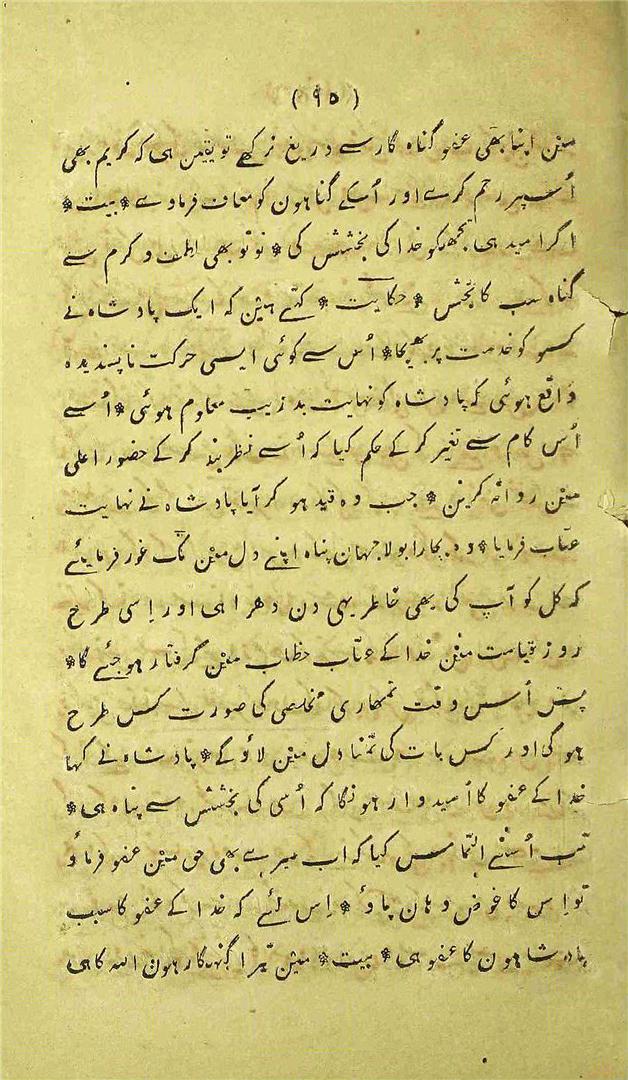 (۹۵)
مین اپنا بھی عفو گناہ گار سے دریغ نرکھے تو یقین ہی کہ کریم بھی
اُسپر رحم کرے اور اُسکے گناہون کو معاف فرماوے * بیت *
اگر امید ہی تجھکو خدا کی بخشش کی * تو تو بھی لطف و کرم سے
گناہ سب کا بخش * حکایت * کہتے ہین کہ ایک پادشاہ نے
کسو کو خدمت پر بھیجا * اُس سے کوئی ایسی حرکت ناپسندیدہ
واقع ہوئی کہ پادشاہ کو نہایت بدزیب معلوم ہوئی * اُسے
اُس کام سے تغیر کرکے حکم کیا کہ اُسے نظر بند کرکے حضور اعلی
مین روانہ کرین * جب وہ قید ہو کر آیا پادشاہ نے نہایت
عتاب فرمایا * وہ بچارا بولا جہان پناہ اپنے دل مین ٹک غور فرمایئے
کہ کل کو آپ کی بھی خاطر یہی دن دھرا ہی اور اِسی طرح
روز قیامت مین خدا کے عتاب خطاب مین گرفتار ہوجئے گا *
پس اُس وقت تمھاری مخلصی کی صورت کس طرح
ہوگی اور کس بات کی تمنا دل مین لاؤگے * پادشاہ نے کہا
خدا کے عفو کا اُمیدوار ہونگا کہ اُسی کی بخشش سے پناہ ہی *
تب اُسنے التماس کیا کہ اب میرے بھی حق مین عفو فرماؤ
تو اِس کا عوض وہان پاؤ * اِس لئے کہ خدا کے عفو کا سبب
پادشاہون کا عفو ہی * بیت * مین تیرا گنہگار ہون اللہ کا ہی